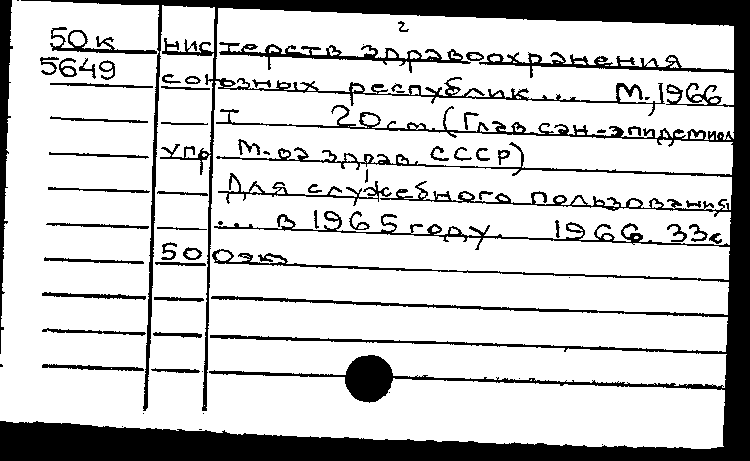 2
50к нистерств здравоохранения
5649 союзных республик... М., 1966
т 20 см. (Глав. сан.-эпидемиол.
упр. М-ва здрав. СССР)
Для служебного пользования
... в 1965 году. 1966. 33 с.
500 экз.